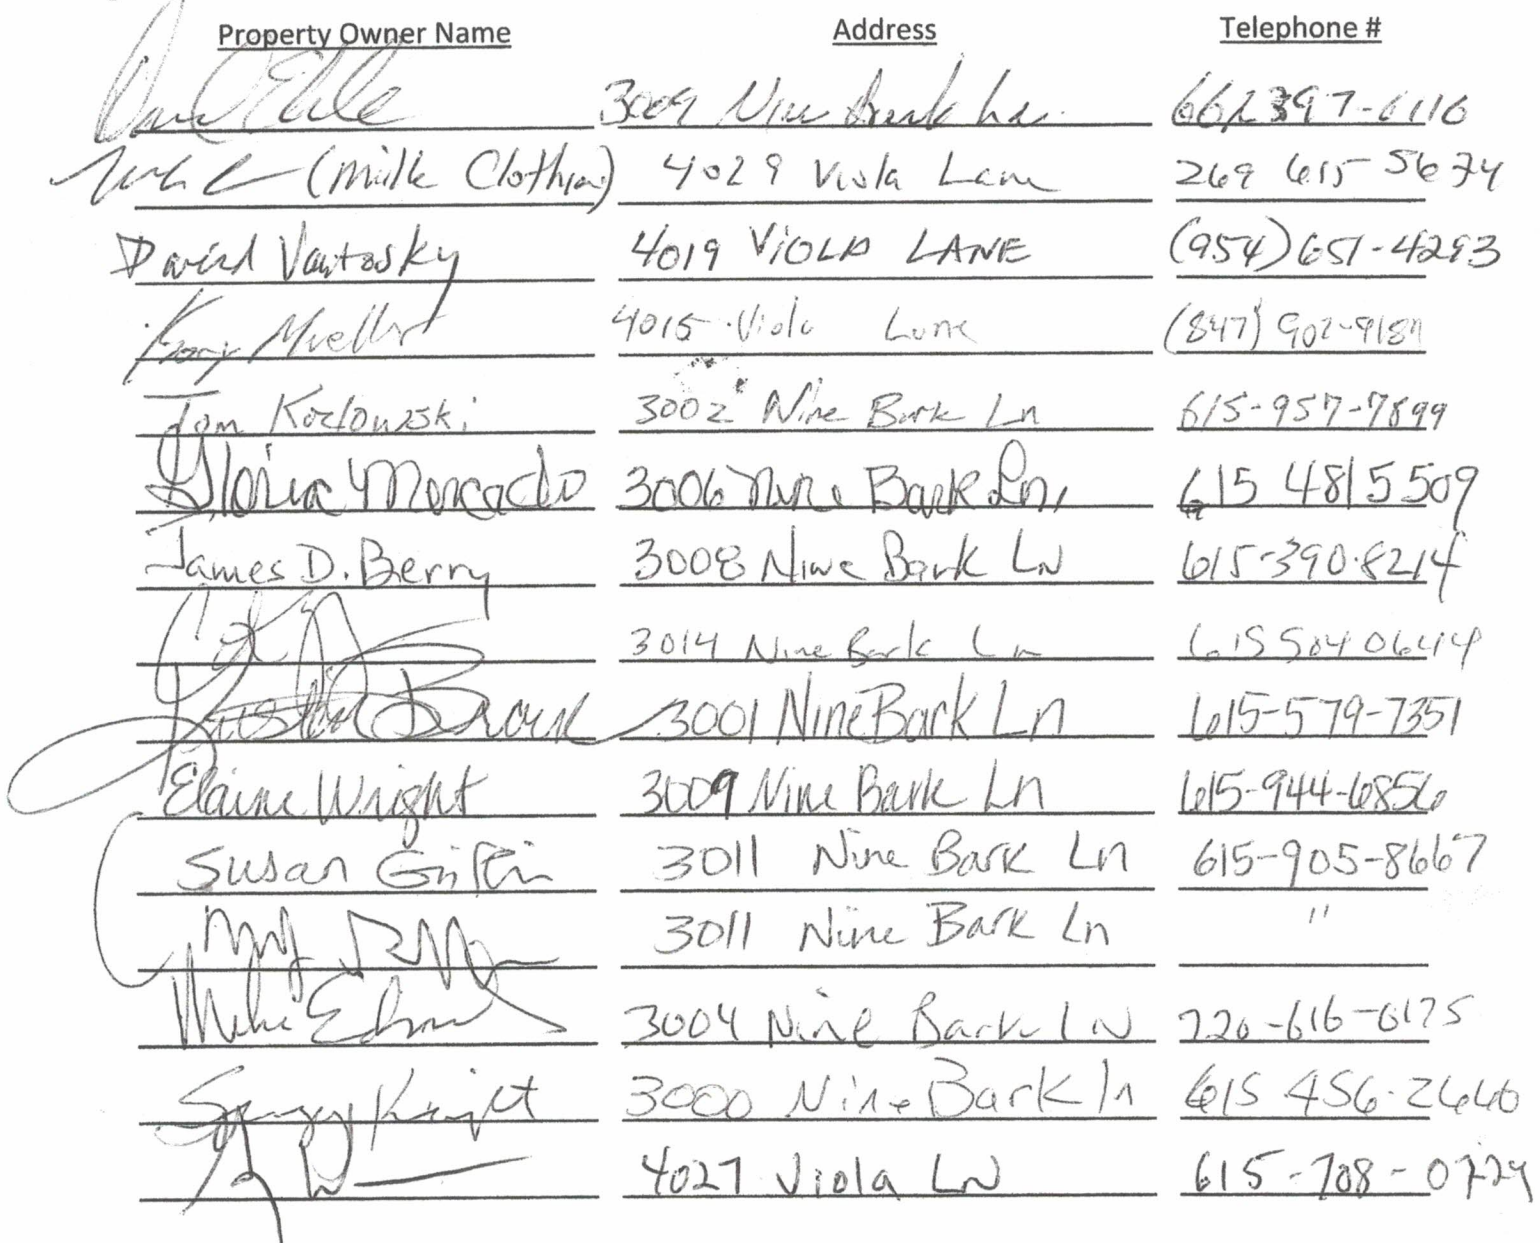 Property Owner Name Address Telephone #
3009 Nine Bark Ln. 662 397-6116
(Mille Clothier) 4029 Viola Lane 269 615 5674
David Vantosky 4019 VIOLA LANE (954) 651-4293
Kory Mueller 4015 Viola Lane (847) 902-9187
Tom Kozlowski 3002 Nine Bark Ln 615-957-7899
Gloria Mercado 3006 Nine Bark Ln, 615 481 5509
James D. Berry 3008 Nine Bark Ln 615-390-8214
3014 Nine Bark Ln 615 504 0644
Brown 3001 Nine Bark Ln 615-579-7351
Elaine Wright 3009 Nine Bark Ln 615-944-6856
Susan Griffin 3011 Nine Bark Ln 615-905-8667
3011 Nine Bark Ln "
Mike 3004 Nine Bark LN 720-616-6175
Knight 3000 Nine Bark ln 615 456-2640
4027 Viola LN 615-708-0729